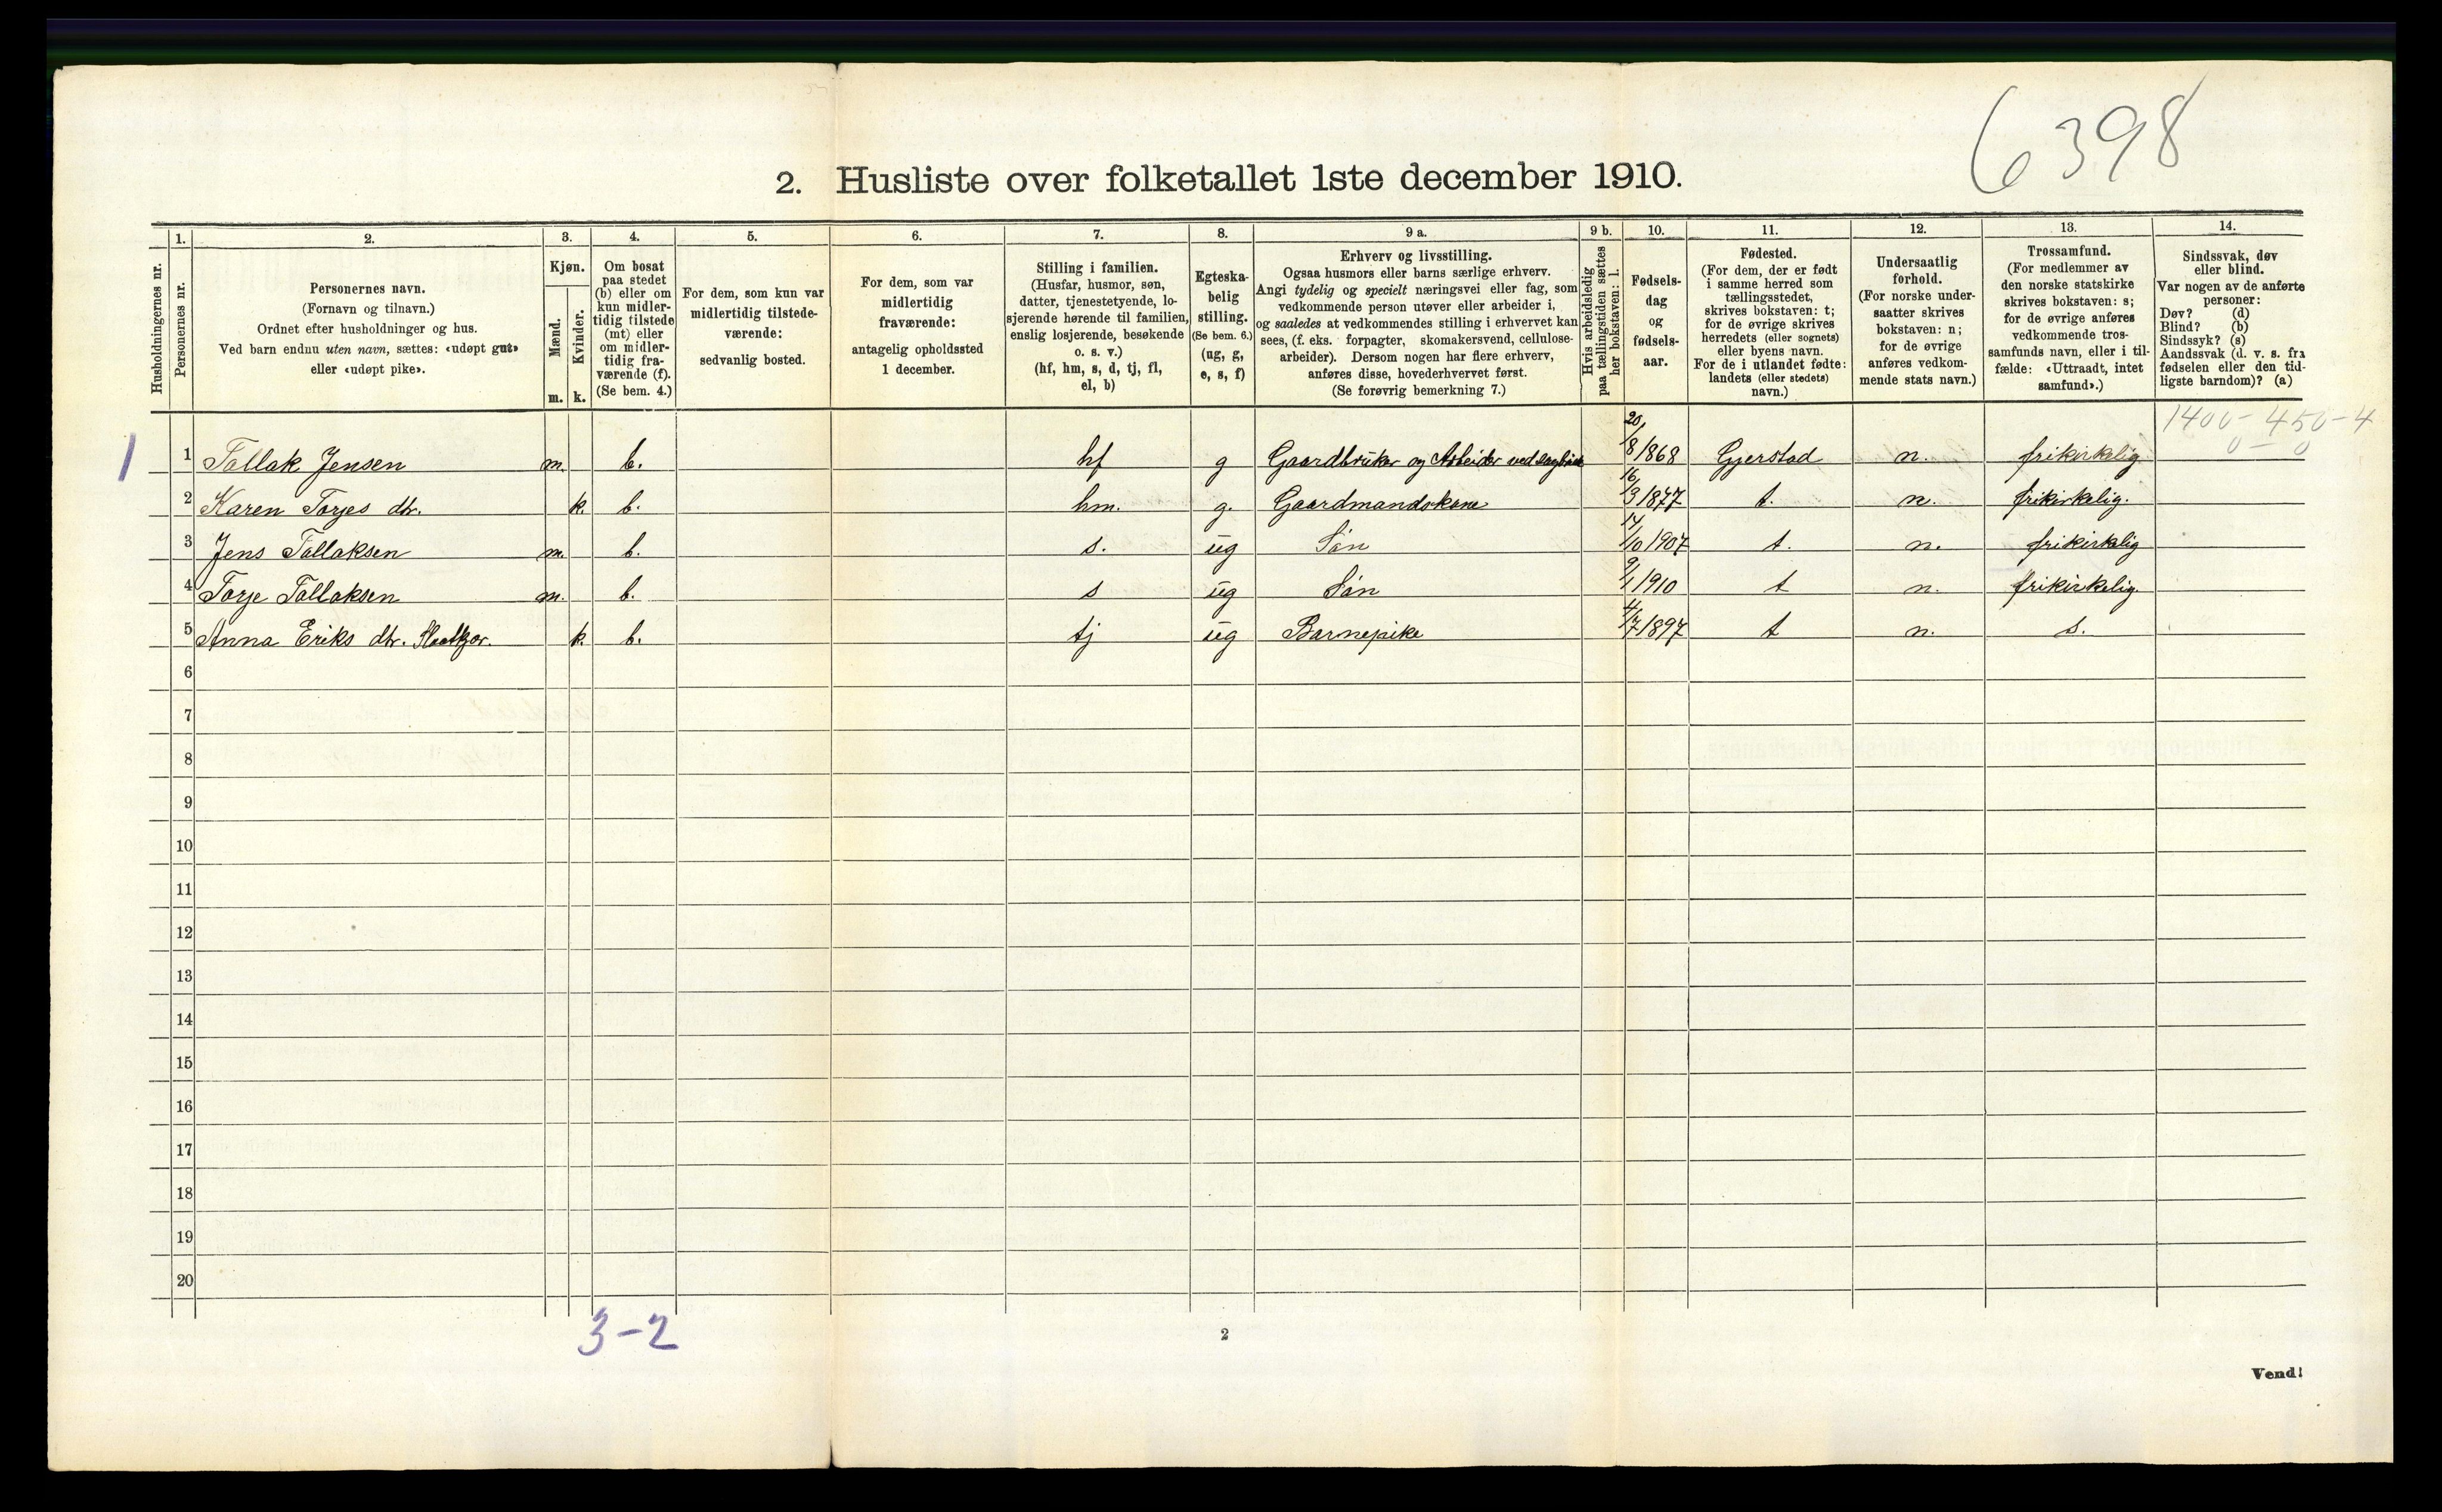 6398
2. Husliste over folketallet 1ste december 1910.
Husholdningernes nr.
1. Personernes nr.
2. Personernes navn. (Fornavn og tilnavn.) Ordnet efter husholdninger og hus. Ved barn endnu uten navn, sættes: «udøpt gut» eller «udøpt pike».
3. Kjøn. Mænd. m. Kvinder. k.
4. Om bosat paa stedet (b) eller om kun midlertidig tilstede (mt) eller om midlertidig fraværende (f). (Se bem. 4.)
5. For dem, som kun var midlertidig tilstedeværende: sedvanlig bosted.
6. For dem, som var midlertidig fraværende: antagelig opholdssted 1 december.
7. Stilling i familien. (Husfar, husmor, søn, datter, tjenestetyende, losjerende hørende til familien, enslig losjerende, besøkende o. s. v.) (hf, hm, s, d, tj, fl, el, b)
8. Egteskabelig stilling. (Se bem. 6.) (ug, g, e, s, f)
9 a. Erhverv og livsstilling. Ogsaa husmors eller barns særlige erhverv. Angi tydelig og specielt næringsvei eller fag, som vedkommende person utøver eller arbeider i, og saaledes at vedkommendes stilling i erhvervet kan sees, (f. eks. forpagter, skomakersvend, cellulosearbeider). Dersom nogen har flere erhverv, anføres disse, hovederhvervet først. (Se forøvrig bemerkning 7.)
9 b. Hvis arbeidsledig paa tællingstiden sættes her bokstaven: l.
10. Fødselsdag og fødselsaar.
11. Fødested. (For dem, der er født i samme herred som tællingsstedet, skrives bokstaven: t; for de øvrige skrives herredets (eller sognets) eller byens navn. For de i utlandet fødte: landets (eller stedets) navn.)
12. Undersaatlig forhold. (For norske undersaatter skrives bokstaven: n; for de øvrige anføres vedkommende stats navn.)
13. Trossamfund. (For medlemmer av den norske statskirke skrives bokstaven: s; for de øvrige anføres vedkommende trossamfunds navn, eller i tilfælde: «Uttraadt, intet samfund».)
14. Sindssvak, døv eller blind. Var nogen av de anførte personer: Døv? (d) Blind? (b) Sindssyk? (s) Aandssvak (d. v. s. fra fødselen eller den tidligste barndom)? (a)
1400-450-4
0 - 0
1 1 Tallak Jensen m. b. hf g Gaardbruker og Arbeider ved sagbruk 20/8 1868 Gjerstad n. frikirkelig
2 Karen Torjes dtr. k. b. hm. g. Gaardmandskone 16/3 1877 t. n. frikirkelig.
3 Jens Tallaksen m. b. s. ug Søn 14/10 1907 t. n. frikirkelig
4 Torje Tallaksen m. b. s ug Søn 9/1 1910 t n. frikirkelig
5 Anna Eriks dtr. k. b. tj ug Barnepike 4/7 1897 t n. s.
6
7
8
9
10
11
12
13
14
15
16
17
18
19
20
3-2
2
Vend!